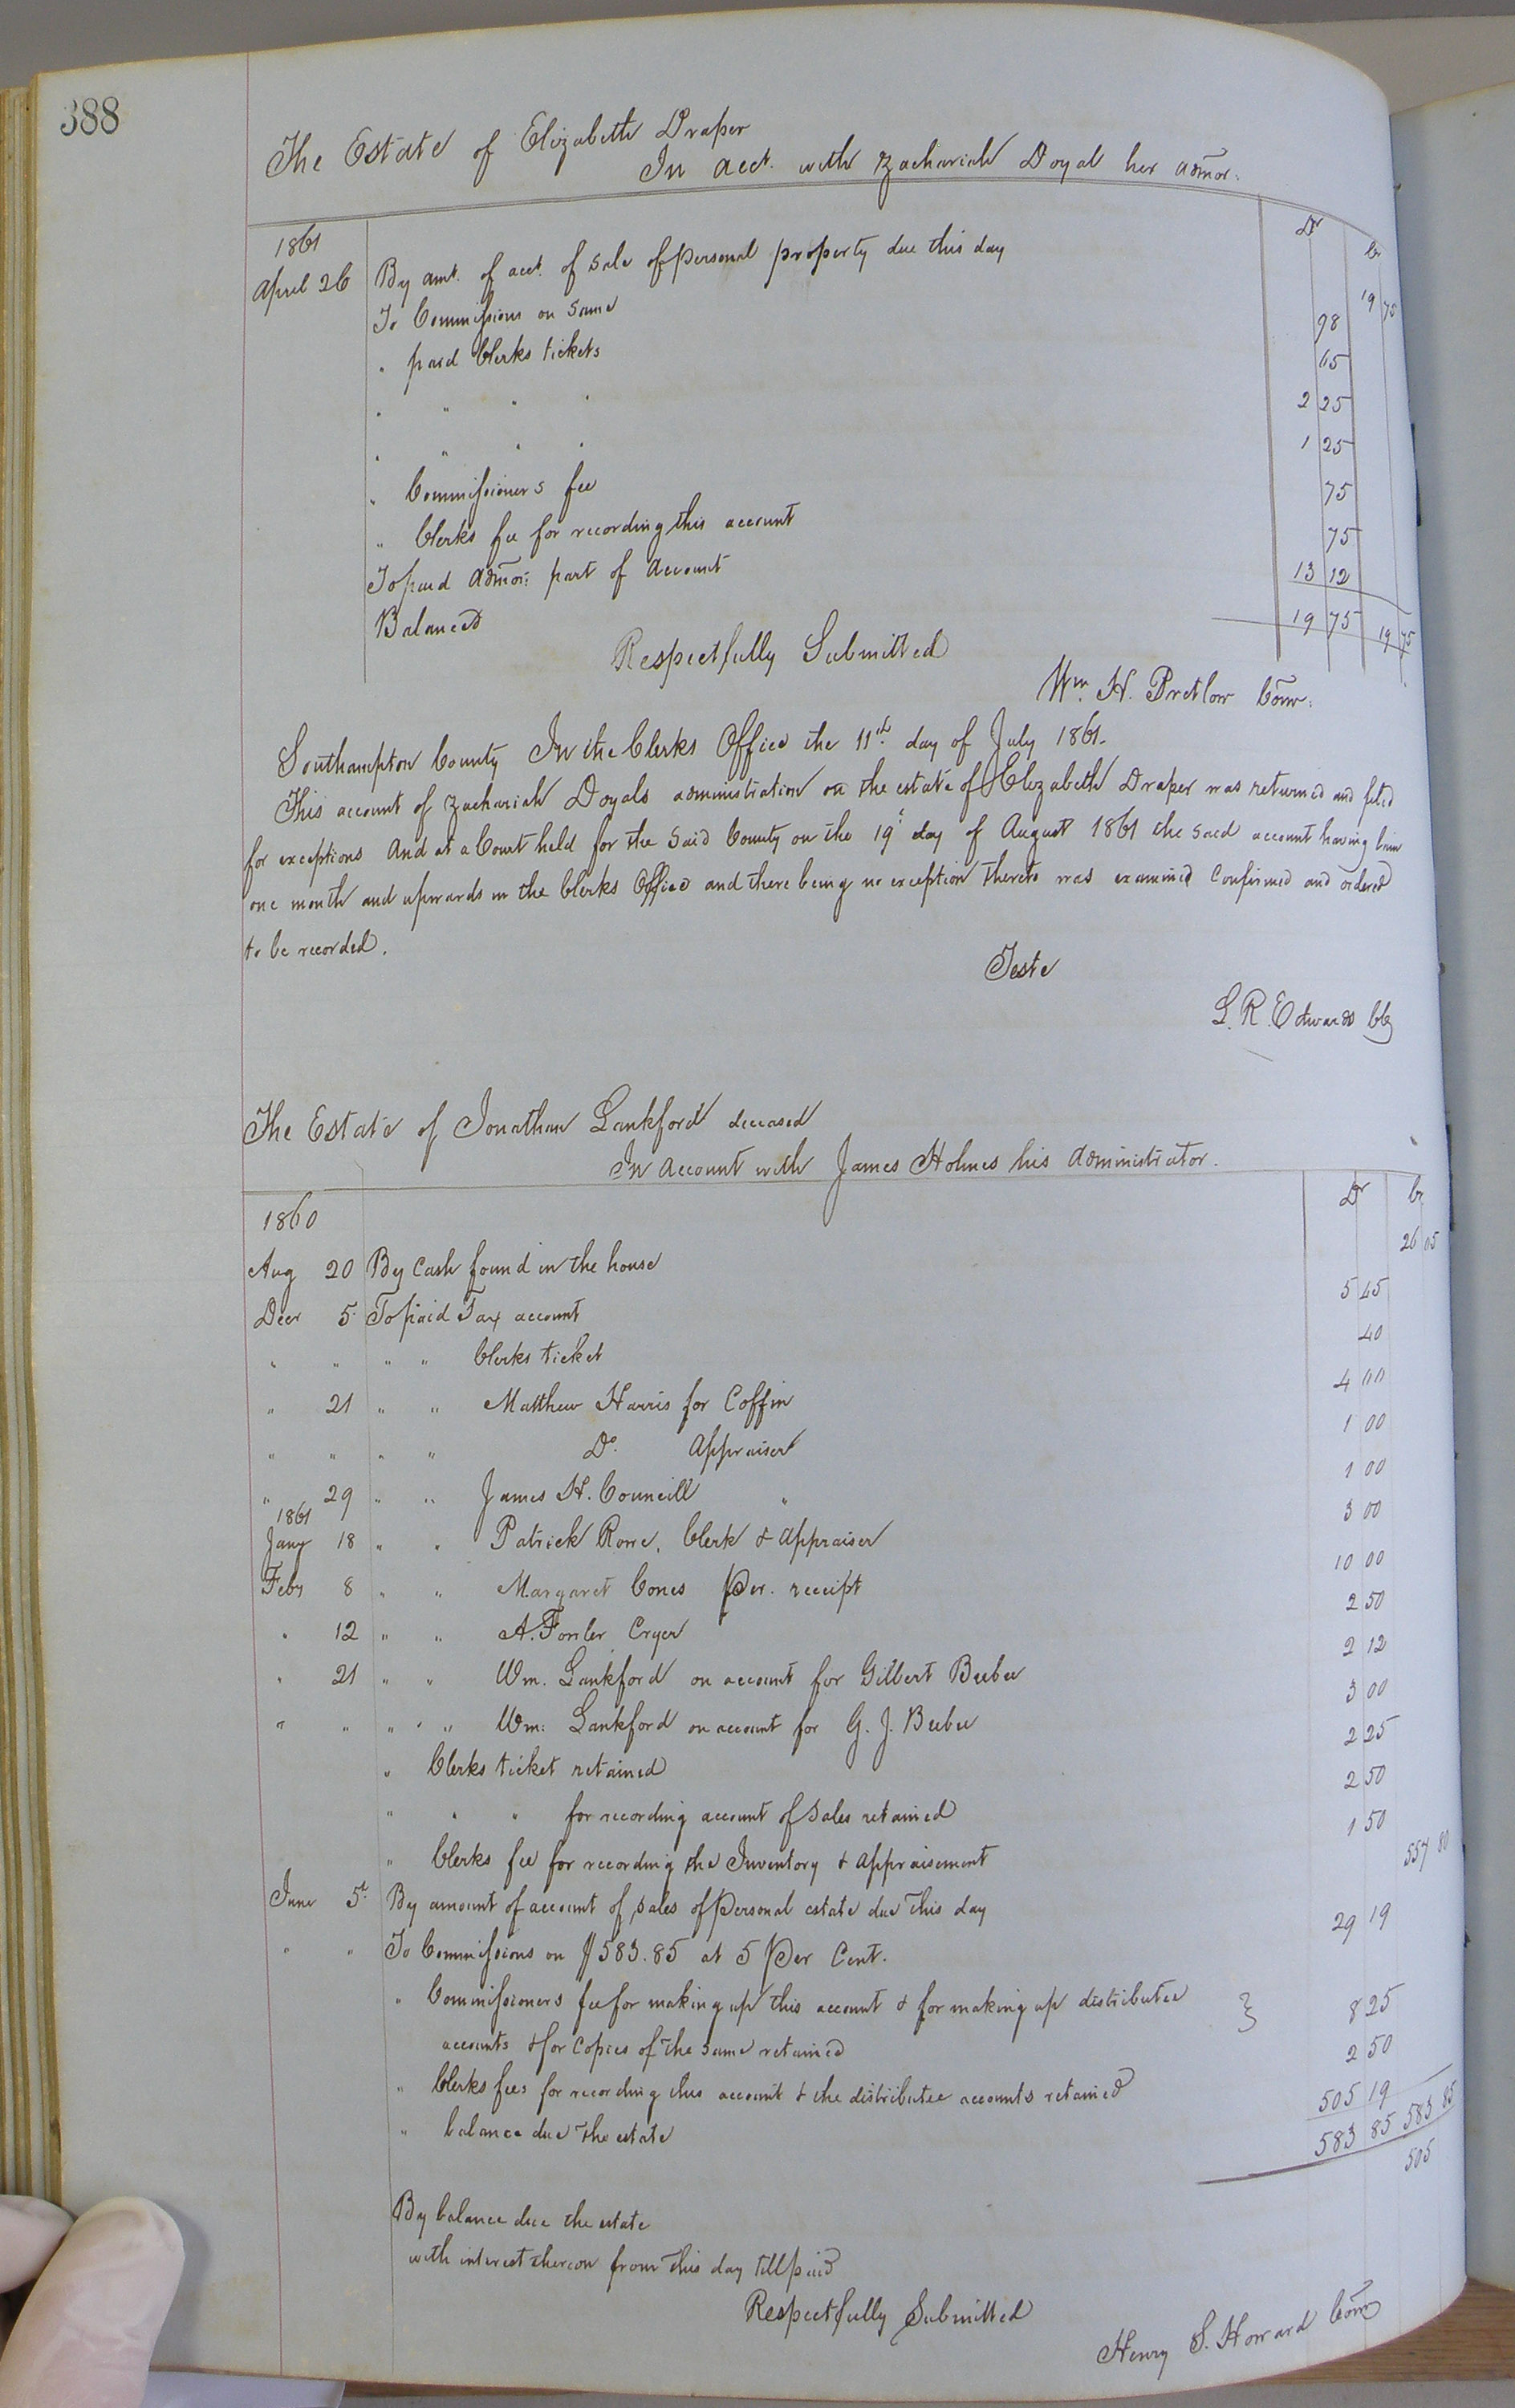 388
The Estate of Elizabeth Draper
In acct. with Zachariah Doyal her admor.
Dr Cr
1861
April 26 By amt. of acct. of sale of personal property due this day 19 75
To Commissions on same 98
" paid Clerks tickets 65
" " " " 2 25
" " " " 1 25
" Commissioners fee 75
" Clerks fee for recording this account 75
To paid admor. part of account 13 12
Balanced 19 75 19 75
Respectfully Submitted
Wm. H. Pretlow Comr.
Southampton County In the Clerks Office the 11th day of July 1861.
This account of Zachariah Doyals administration on the estate of Elizabeth Draper was returned and filed
for exceptions And at a Court held for the said County on the 19th day of August 1861 the said account having lain
one month and upwards in the Clerks Office and there being no exception thereto was examined Confirmed and ordered
to be recorded.
Teste
L. R. Edwards Clk
The Estate of Jonathan Lankford deceased
In account with James Holmes his administrator.
Dr Cr
1860
Aug 20 By Cash found in the house 26 05
Decr 5 To paid Tax account 5 45
" " " " Clerks ticket 40
" 21 " " Matthew Harris for Coffin 4 00
" " " " Do. Appraiser 1 00
" 29 " " James H. Councill " 1 00
1861
Jany 18 " " Patrick Rowe, Clerk & appraiser 3 00
Feby 8 " " Margaret Cones per. receipt 10 00
" 12 " " A. Fowler Cryer 2 50
" 21 " " Wm. Lankford on account for Gilbert Beber 2 12
" " " " Wm: Lankford on account for G. J. Beber 3 00
" Clerks ticket retained 2 25
" " " for recording account of sales retained 2 50
" Clerks fee for recording the Inventory & appraisement 1 50
June 5th By amount of account of sales of personal estate due this day 557 80
" " To Commissions on $583.85 at 5 per Cent. 29 19
" Commissioners fee for making up this account & for making up distributee }
accounts & for Copies of the same retained 8 25
" Clerks fees for recording this account & the distributee accounts retained 2 50
" balance due the estate 505 19
583 85 583 85
By balance due the estate 505
with interest thereon from this day till paid
Respectfully Submitted
Henry S. Howard Comr